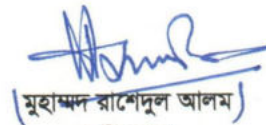 (মুহাম্মদ রাশেদুল আলম)